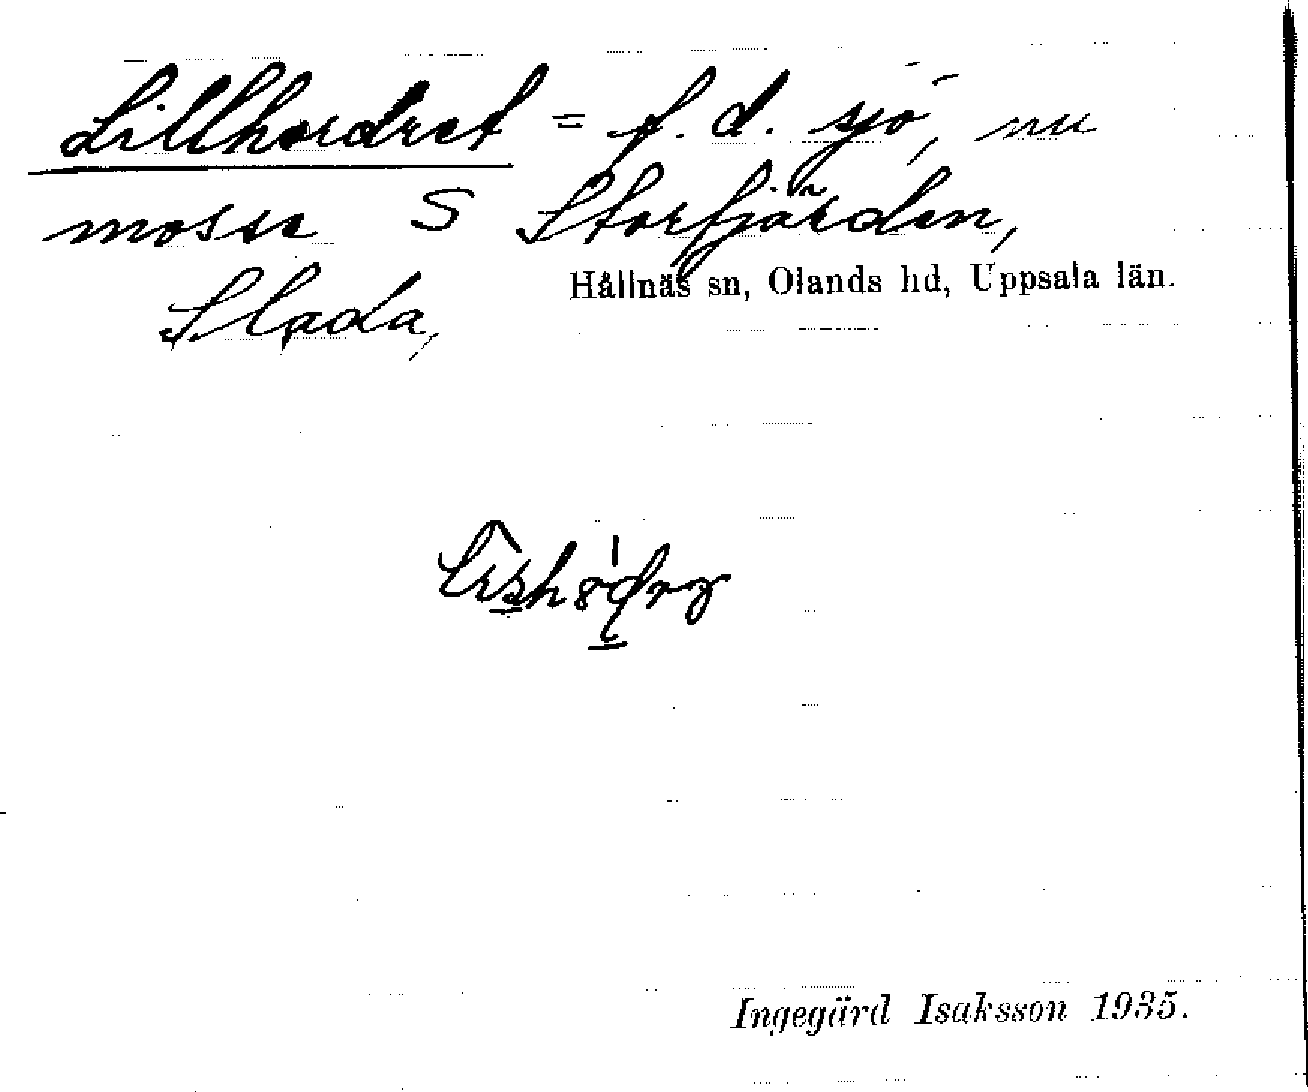 Lillhordret = f. d. sjö, nu
mosse S Storfjärden,
Slada,
Hållnäs sn, Olands hd, Uppsala län.
Ingegärd Isaksson 1935.